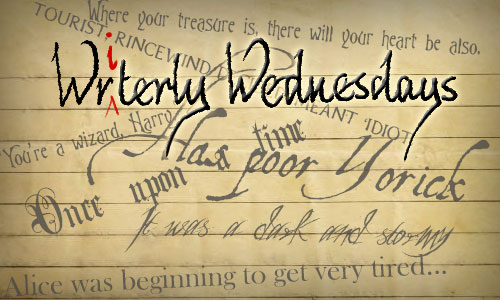 Where your treasure is, there will your heart be also.
TOURIST, RINCEWIND MEANT 'IDIOT'
Writerly Wednesdays
You're a wizard, Harry
Alas poor Yorick
Once upon a time
It was a dark and stormy
Alice was beginning to get very tired...